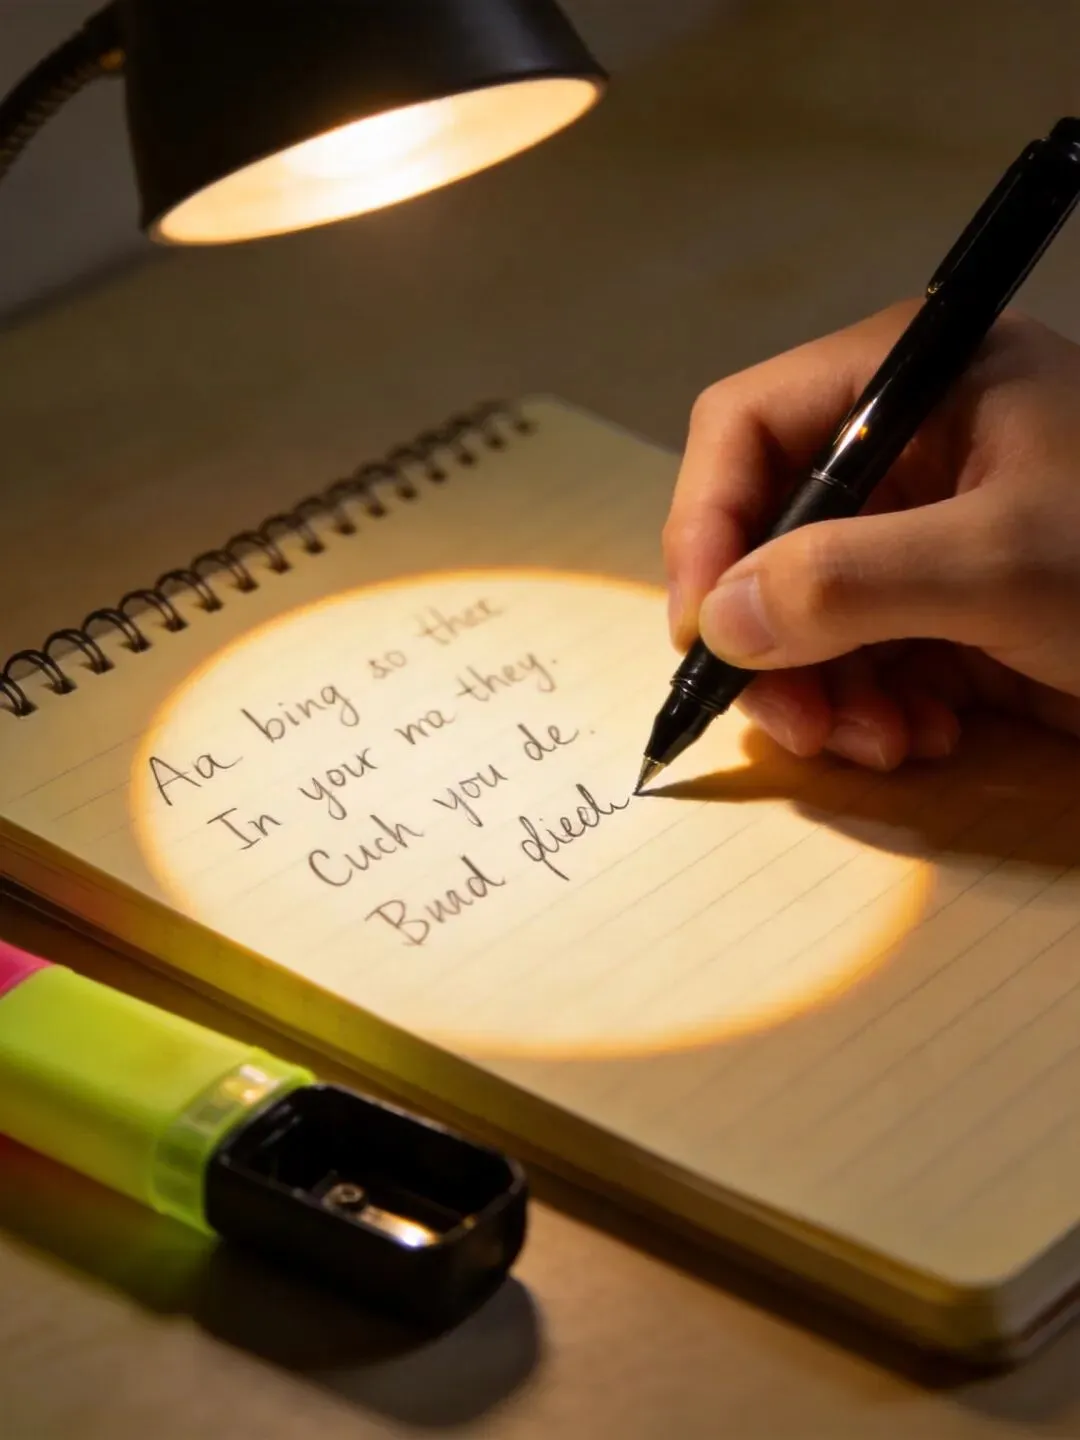 Aa bing so ther
In your ma they.
Cuch you de.
Buad